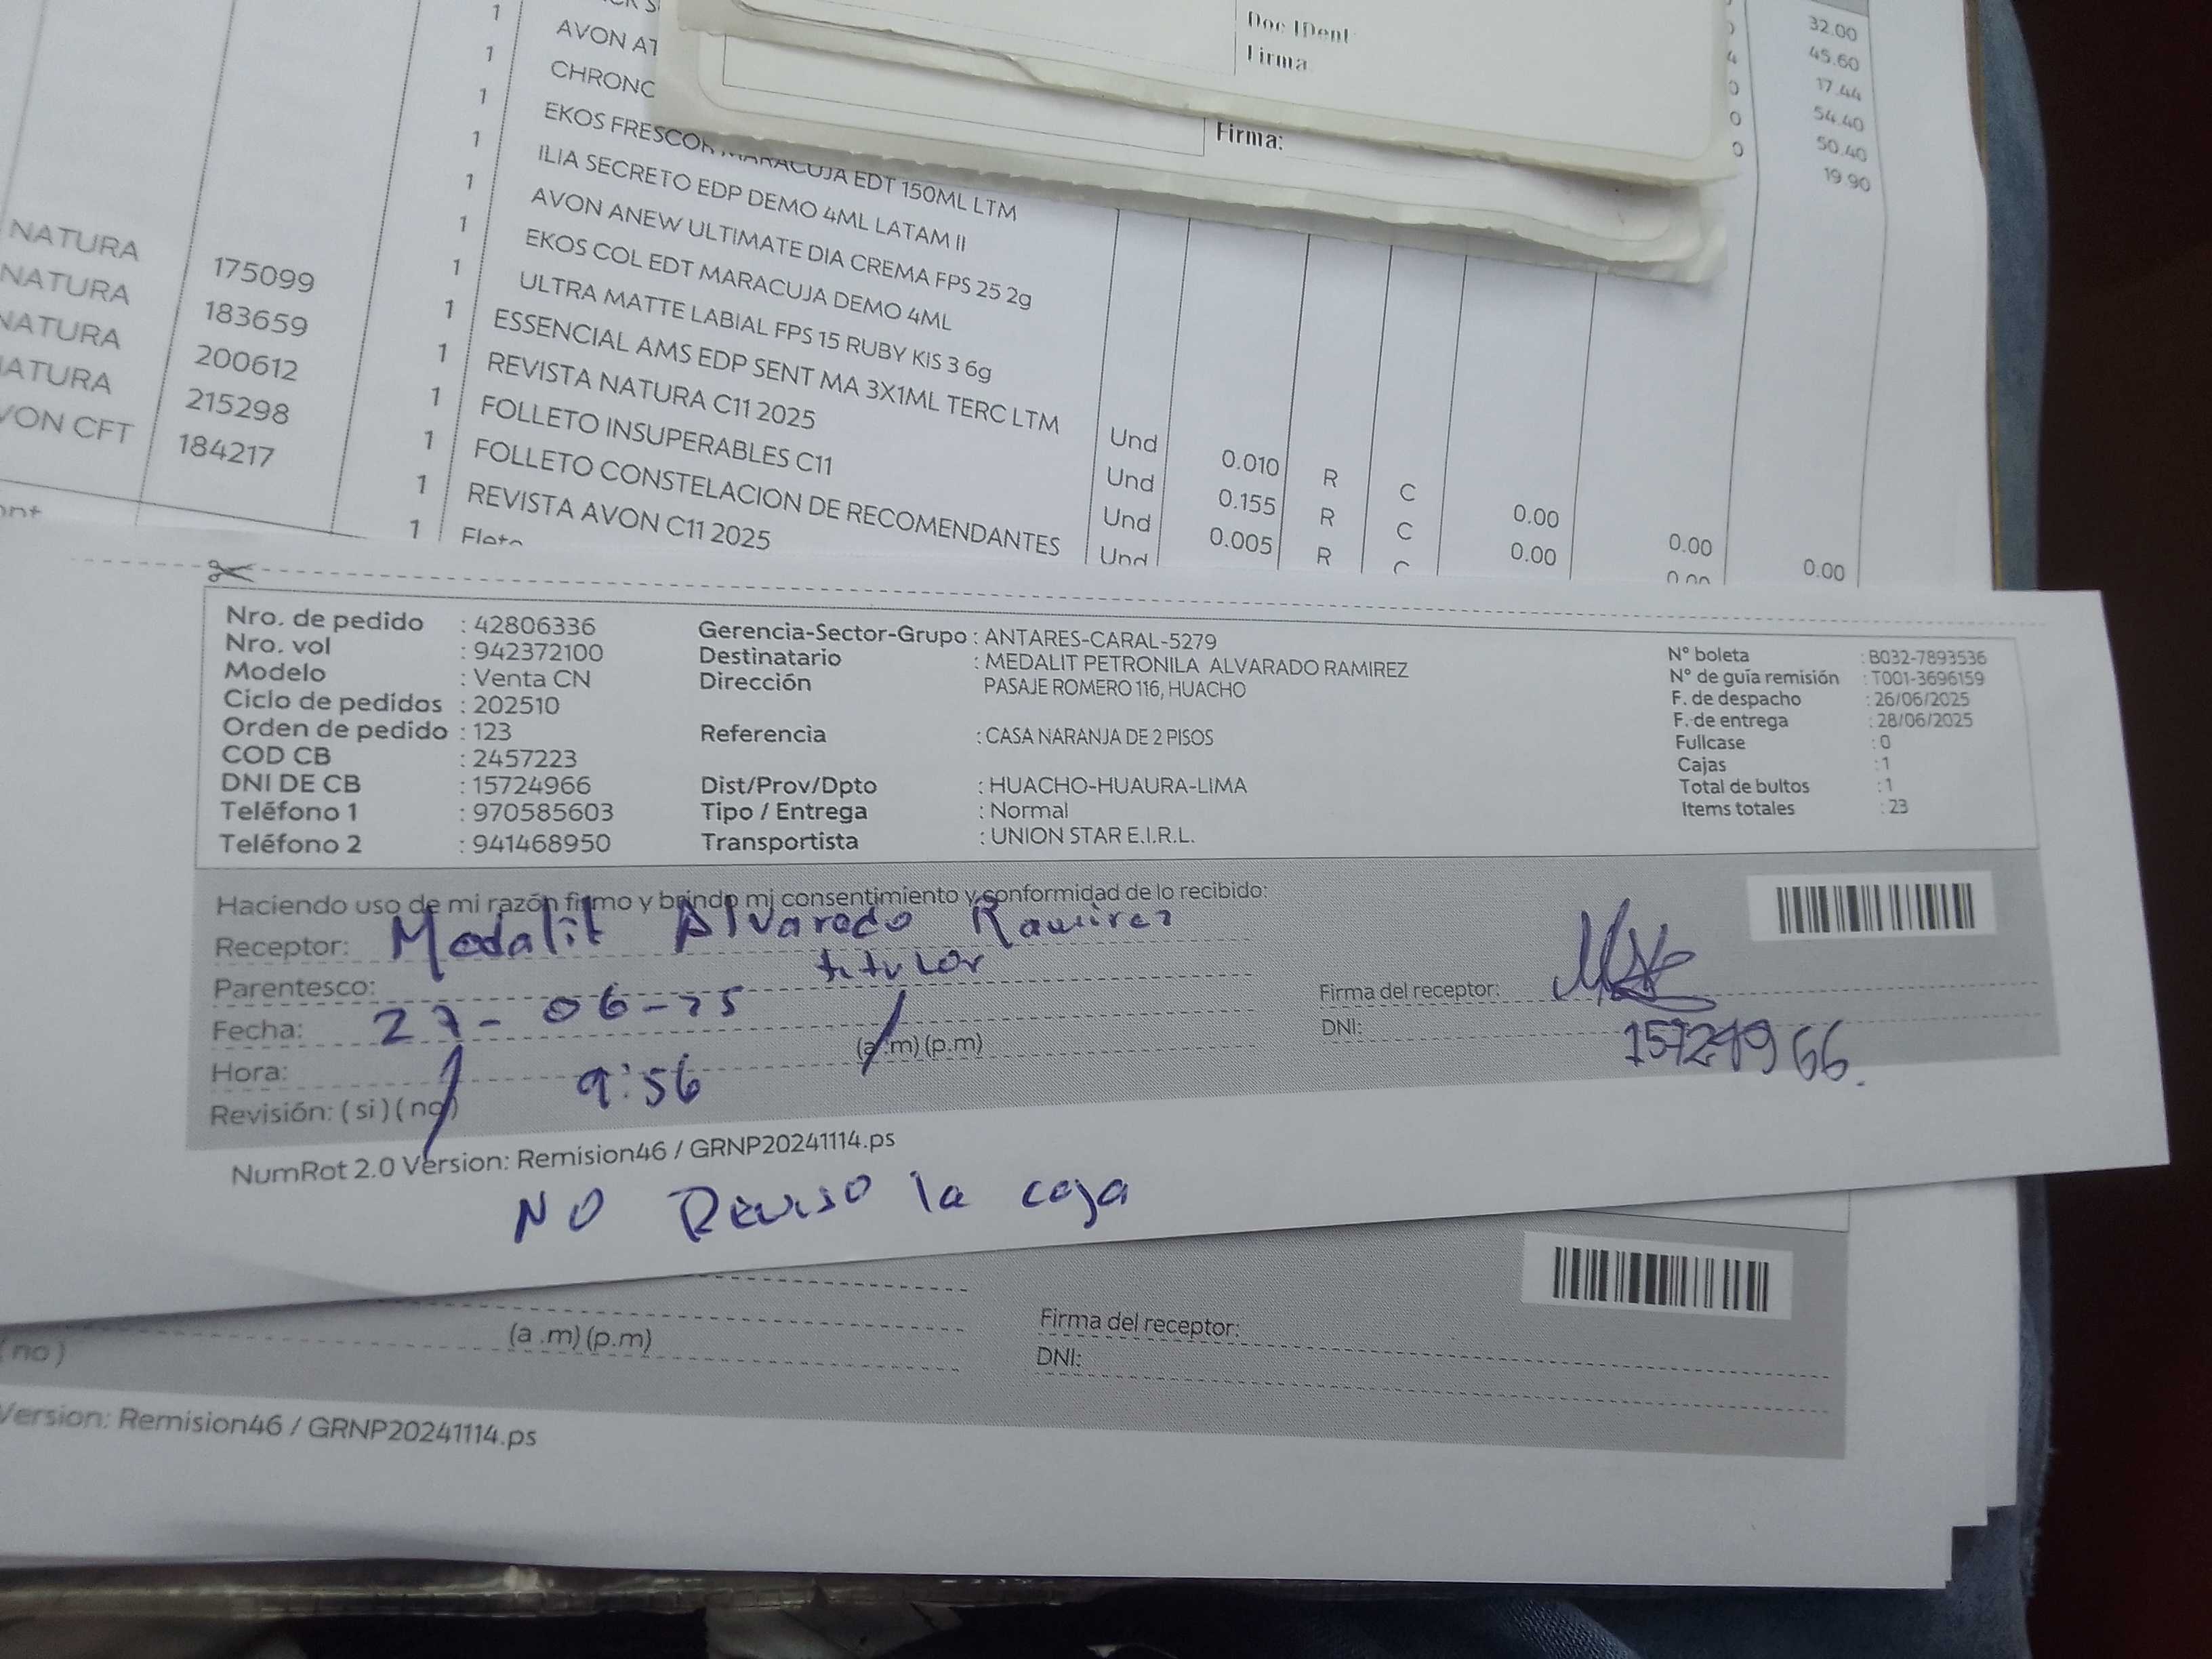 Doc IDent
Firma
Firma:
32.00
45.60
17.44
54.40
50.40
19.90
1
1 AVON AT
1 CHRONO
1 EKOS FRESCOR MARACUJA EDT 150ML LTM
1 ILIA SECRETO EDP DEMO 4ML LATAM II
1 AVON ANEW ULTIMATE DIA CREMA FPS 25 2g
1 EKOS COL EDT MARACUJA DEMO 4ML
1 ULTRA MATTE LABIAL FPS 15 RUBY KIS 3 6g
NATURA 175099 1 ESSENCIAL AMS EDP SENT MA 3X1ML TERC LTM Und 0.010 R C 0.00 0.00 0.00
NATURA 183659 1 REVISTA NATURA C11 2025 Und 0.155 R C 0.00
NATURA 200612 1 FOLLETO INSUPERABLES C11 Und 0.005 R
NATURA 215298 1 FOLLETO CONSTELACION DE RECOMENDANTES Und
VON CFT 184217 1 REVISTA AVON C11 2025
Flete
Nro. de pedido : 42806336
Nro. vol : 942372100
Modelo : Venta CN
Ciclo de pedidos : 202510
Orden de pedido : 123
COD CB : 2457223
DNI DE CB : 15724966
Teléfono 1 : 970585603
Teléfono 2 : 941468950
Gerencia-Sector-Grupo : ANTARES-CARAL-5279
Destinatario : MEDALIT PETRONILA ALVARADO RAMIREZ
Dirección PASAJE ROMERO 116, HUACHO
Referencia : CASA NARANJA DE 2 PISOS
Dist/Prov/Dpto : HUACHO-HUAURA-LIMA
Tipo / Entrega : Normal
Transportista : UNION STAR E.I.R.L.
N° boleta : B032-7893536
N° de guía remisión : T001-3696159
F. de despacho : 26/06/2025
F. de entrega : 28/06/2025
Fullcase : 0
Cajas : 1
Total de bultos : 1
Items totales : 23
Haciendo uso de mi razón firmo y brindo mi consentimiento y conformidad de lo recibido:
Receptor: Medalit Alvarado Ramirez
Parentesco: titular
Fecha: 27-06-25
Hora: 9:56 (a .m) (p.m)
Revisión: ( si ) ( no )
Firma del receptor:
DNI: 15724966.
NumRot 2.0 Version: Remision46 / GRNP20241114.ps
NO Reviso la caja
(a .m) (p.m)
( no )
Firma del receptor:
DNI:
Version: Remision46 / GRNP20241114.ps